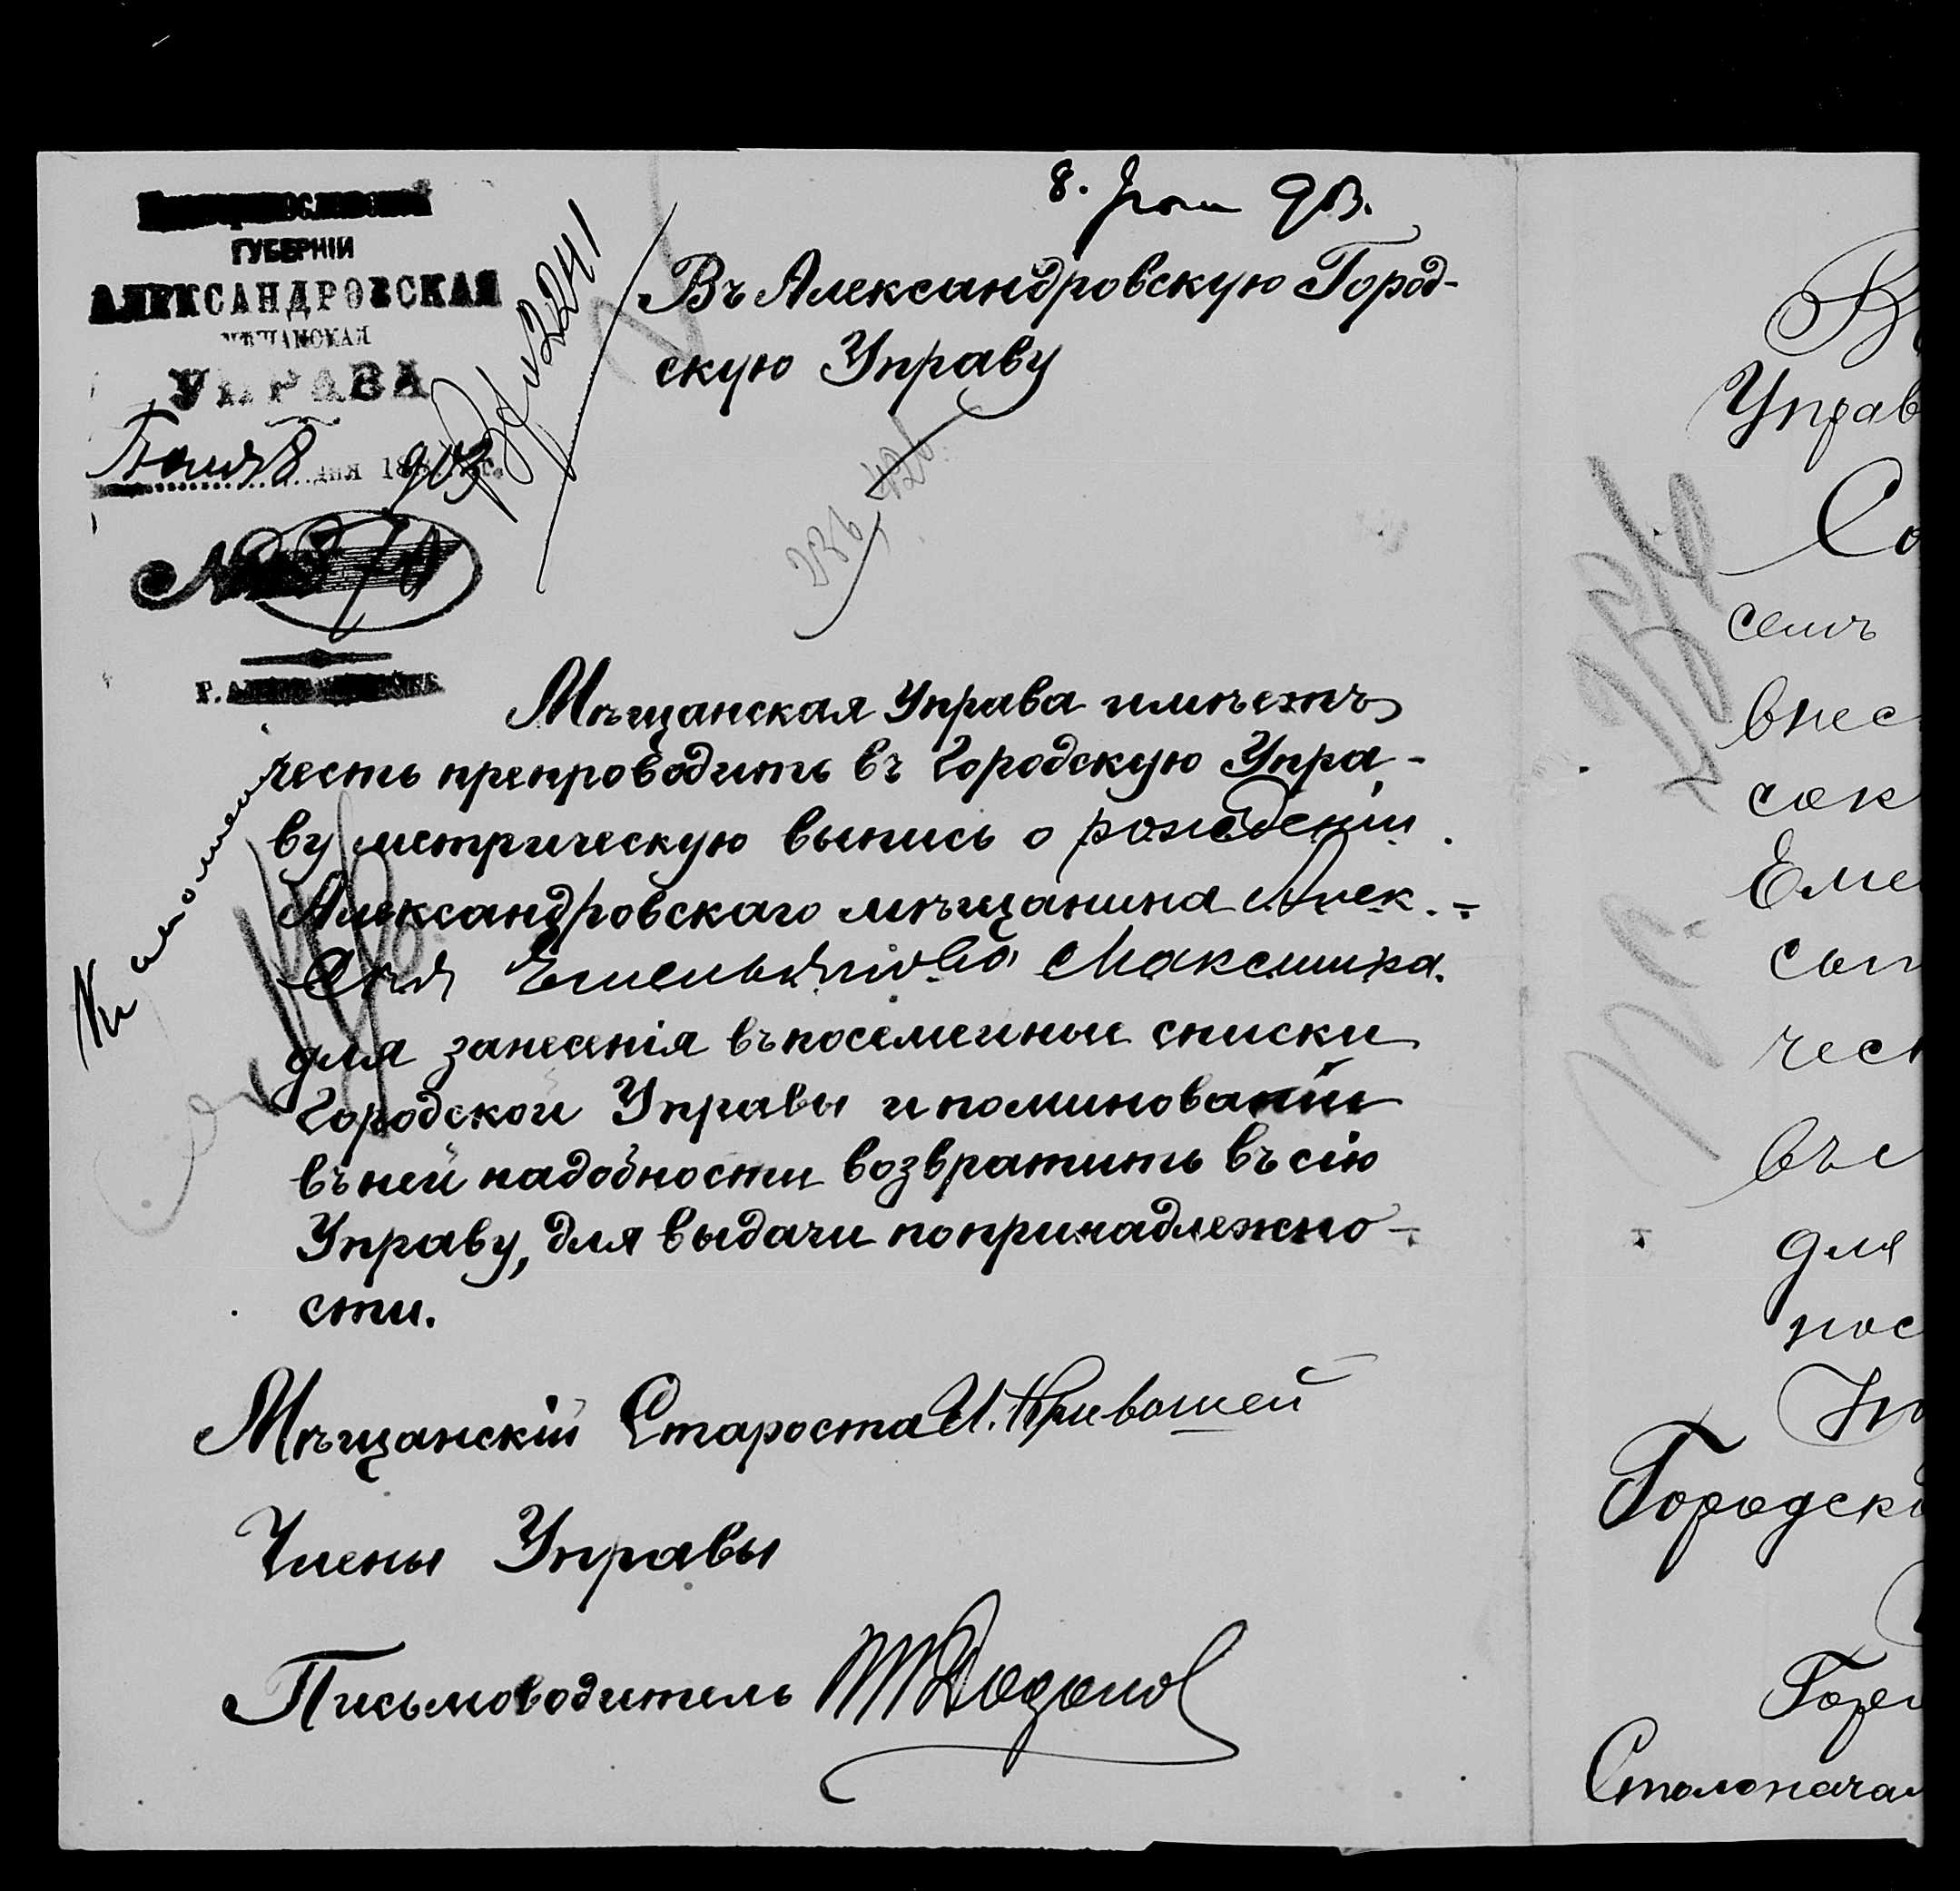 ГУБЕРНІИ
АЛЕКСАНДРОВСКАЯ
МѢЩАНСКАЯ
УПРАВА
8 дня 1903
№ 870
Вх № 2241
8. 903.
Въ Александровскую Город-
скую Управу
Мѣщанская Управа имѣетъ
честь препроводить въ Городскую Упра-
ву метрическую выпись о рожденіи
Александровскаго мѣщанина Алек-
сѣя Емельянова Максимца
для занесенія въ посемейные списки
Городской Управы и поминованіи
въ ней надобности возвратить въ сію
Управу, для выдачи по принадлежно-
сти.
Мѣщанскій Староста И. Кривошей
Члены Управы
Письмоводитель
Управ
Со
семъ
внес
сок
Еме
сын
чест
въ с
для
пос
Городско
Столоначал